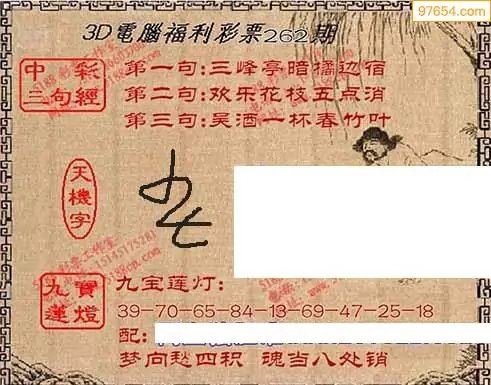 97654.com
3D電腦福利彩票262期
中彩三句經
第一句:三峰亭暗橘边宿
第二句:欢乐花枝五点消
第三句:吴酒一杯春竹叶
天機字
九寶蓮燈
九宝莲灯:
39-70-65-84-13-69-47-25-18
配:
梦向愁四积 魂当八处销